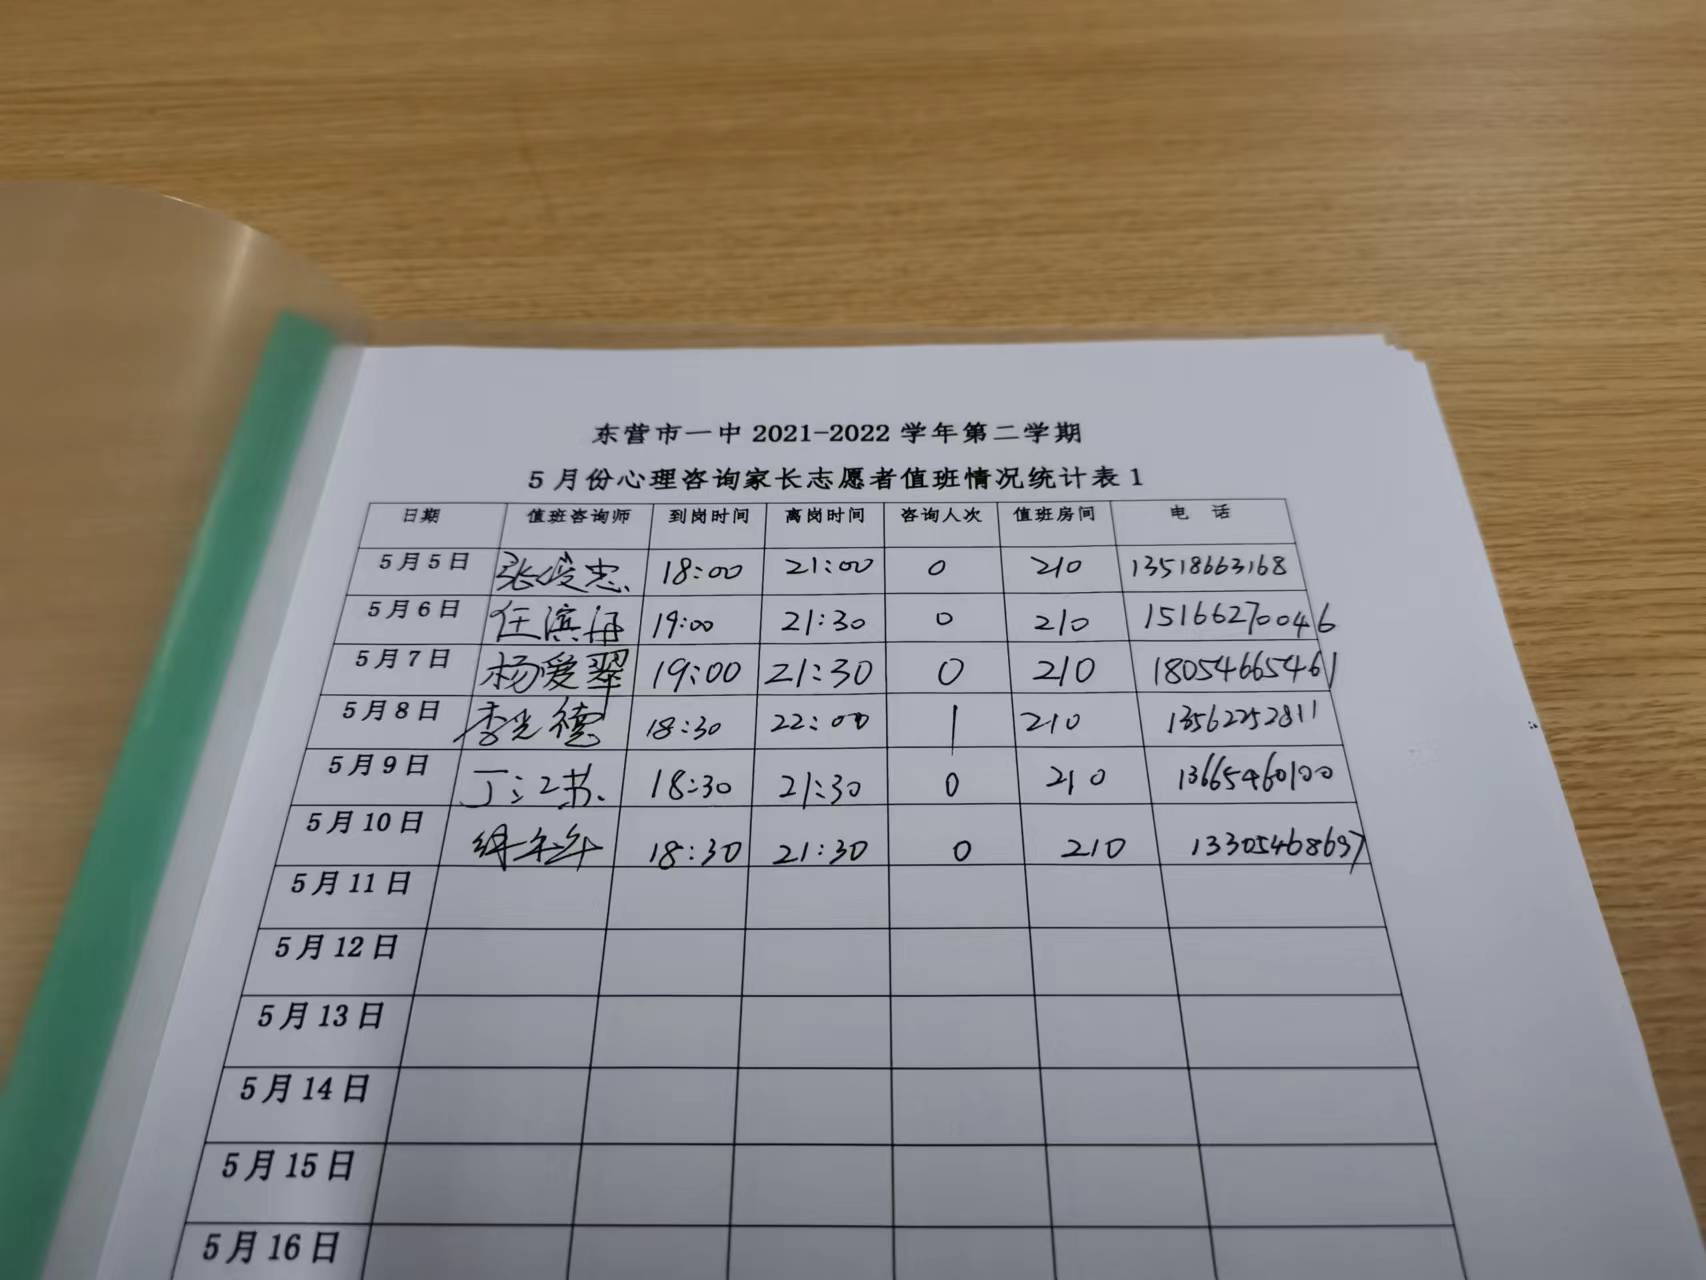 东营市一中 2021-2022 学年第二学期
5 月份心理咨询家长志愿者值班情况统计表 1
日期 值班咨询师 到岗时间 离岗时间 咨询人次 值班房间 电 话
5 月 5 日 张俊忠 18:00 21:00 0 210 13518663168
5 月 6 日 任滨 19:00 21:30 0 210 15166270046
5 月 7 日 杨爱翠 19:00 21:30 0 210 18054665461
5 月 8 日 李光德 18:30 22:00 1 210 13562252811
5 月 9 日 丁江 18:30 21:30 0 210 13665460100
5 月 10 日 18:30 21:30 0 210 13305468637
5 月 11 日
5 月 12 日
5 月 13 日
5 月 14 日
5 月 15 日
5 月 16 日